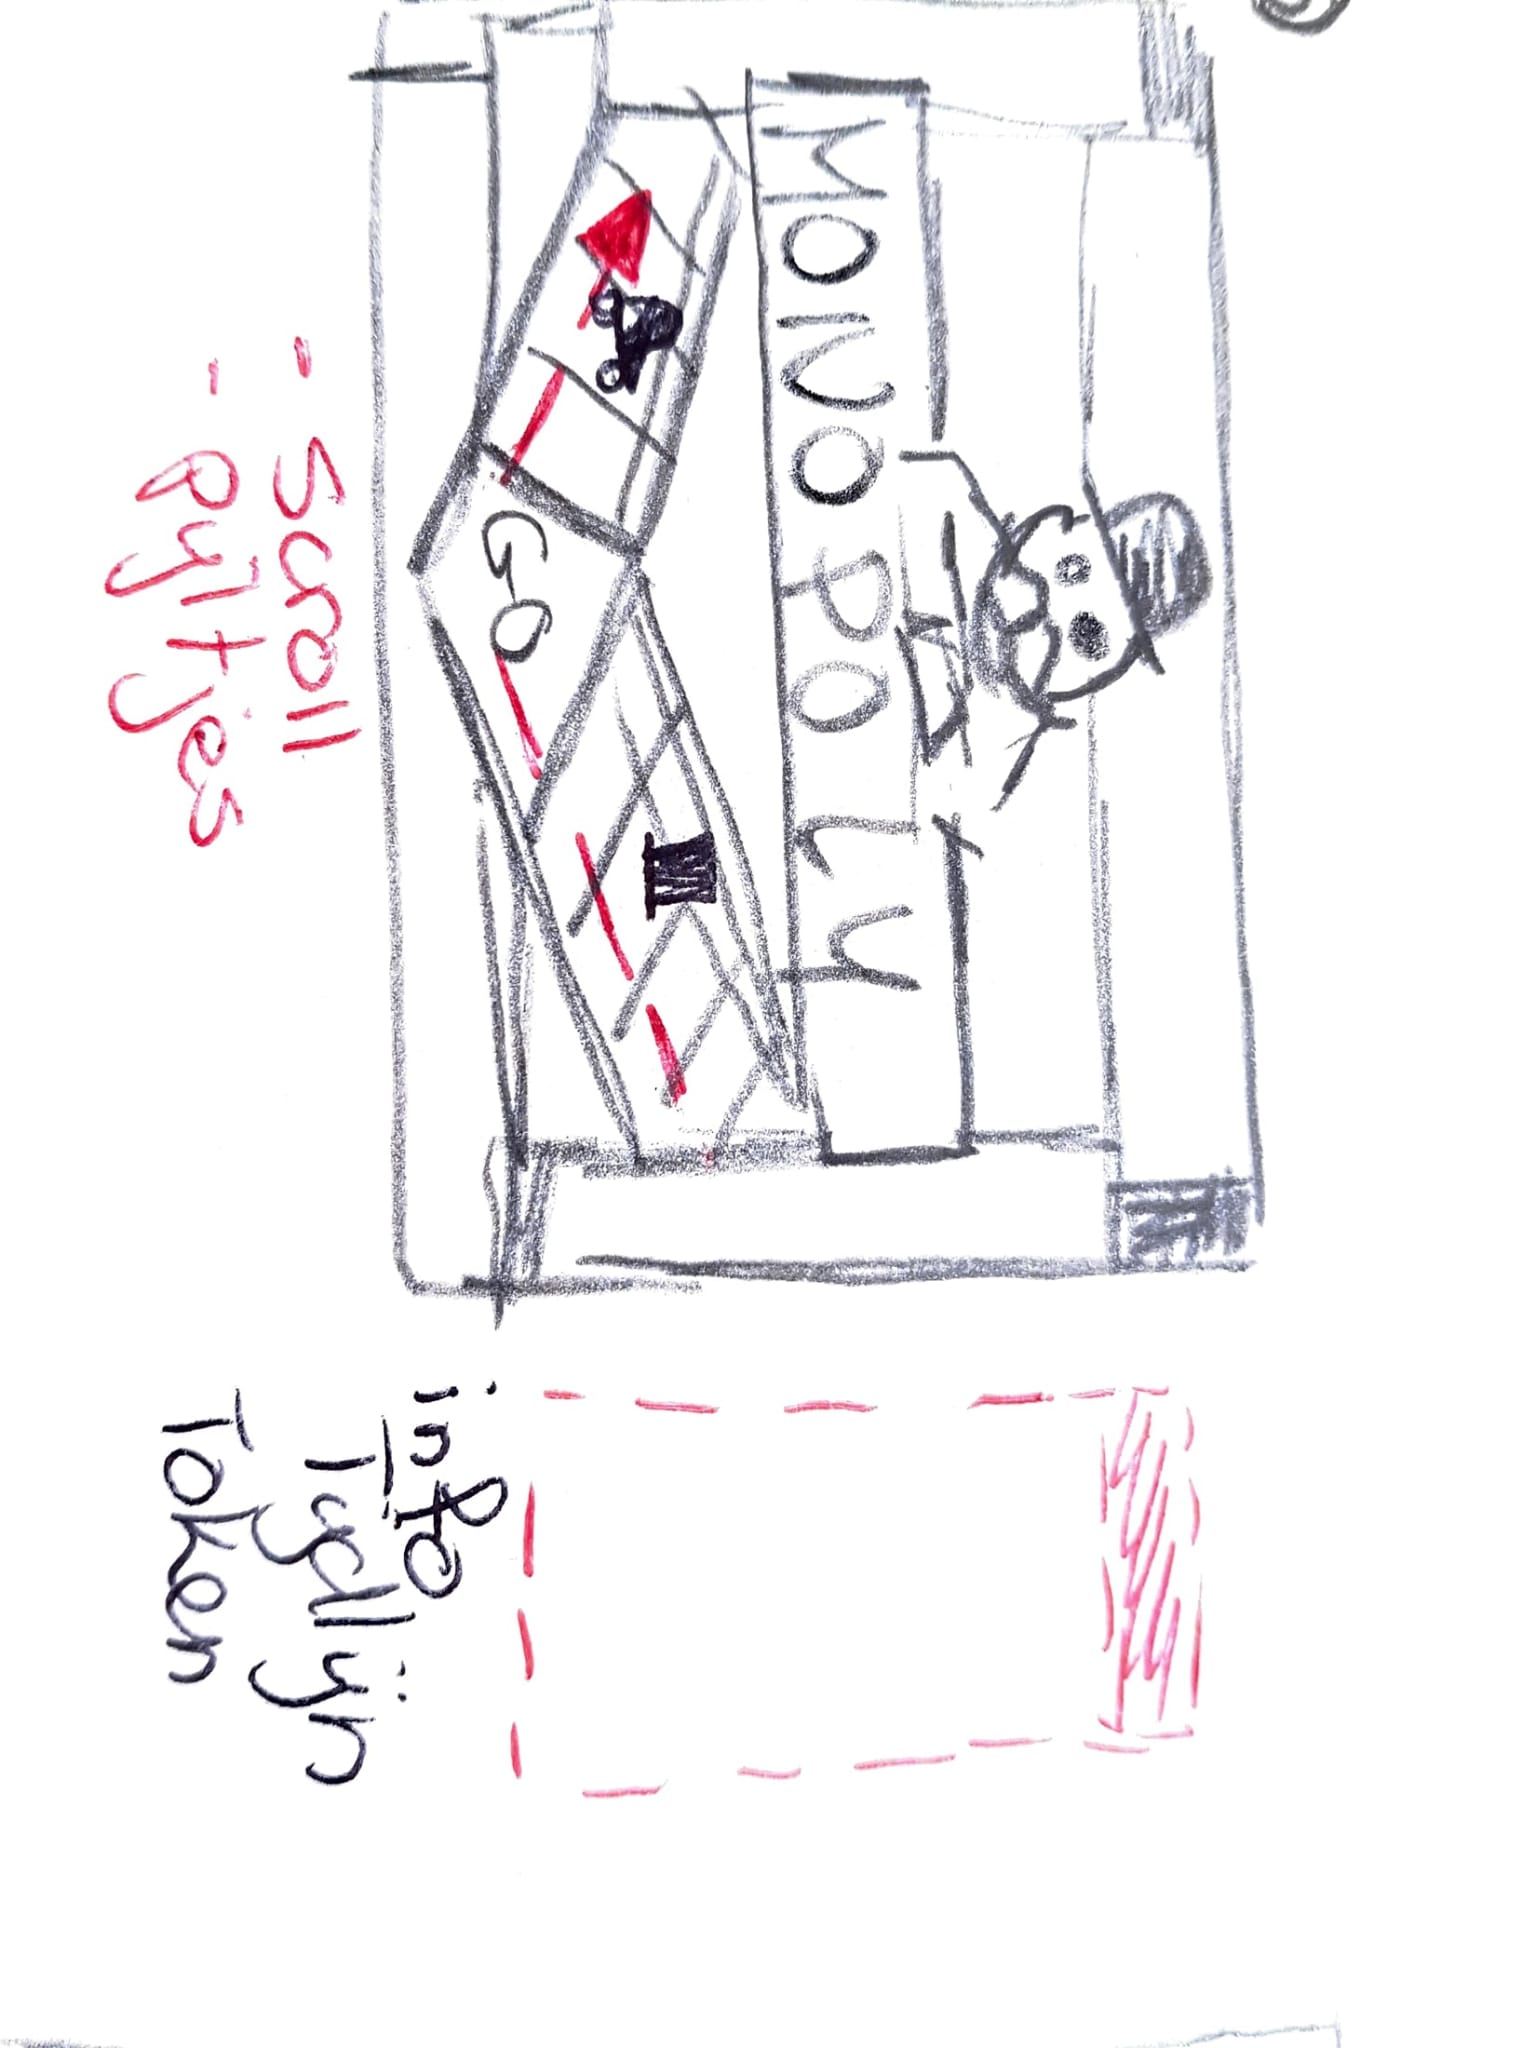 MONOPOLY
GO
- scroll
- pyltjes
info
Tydlijn
Token